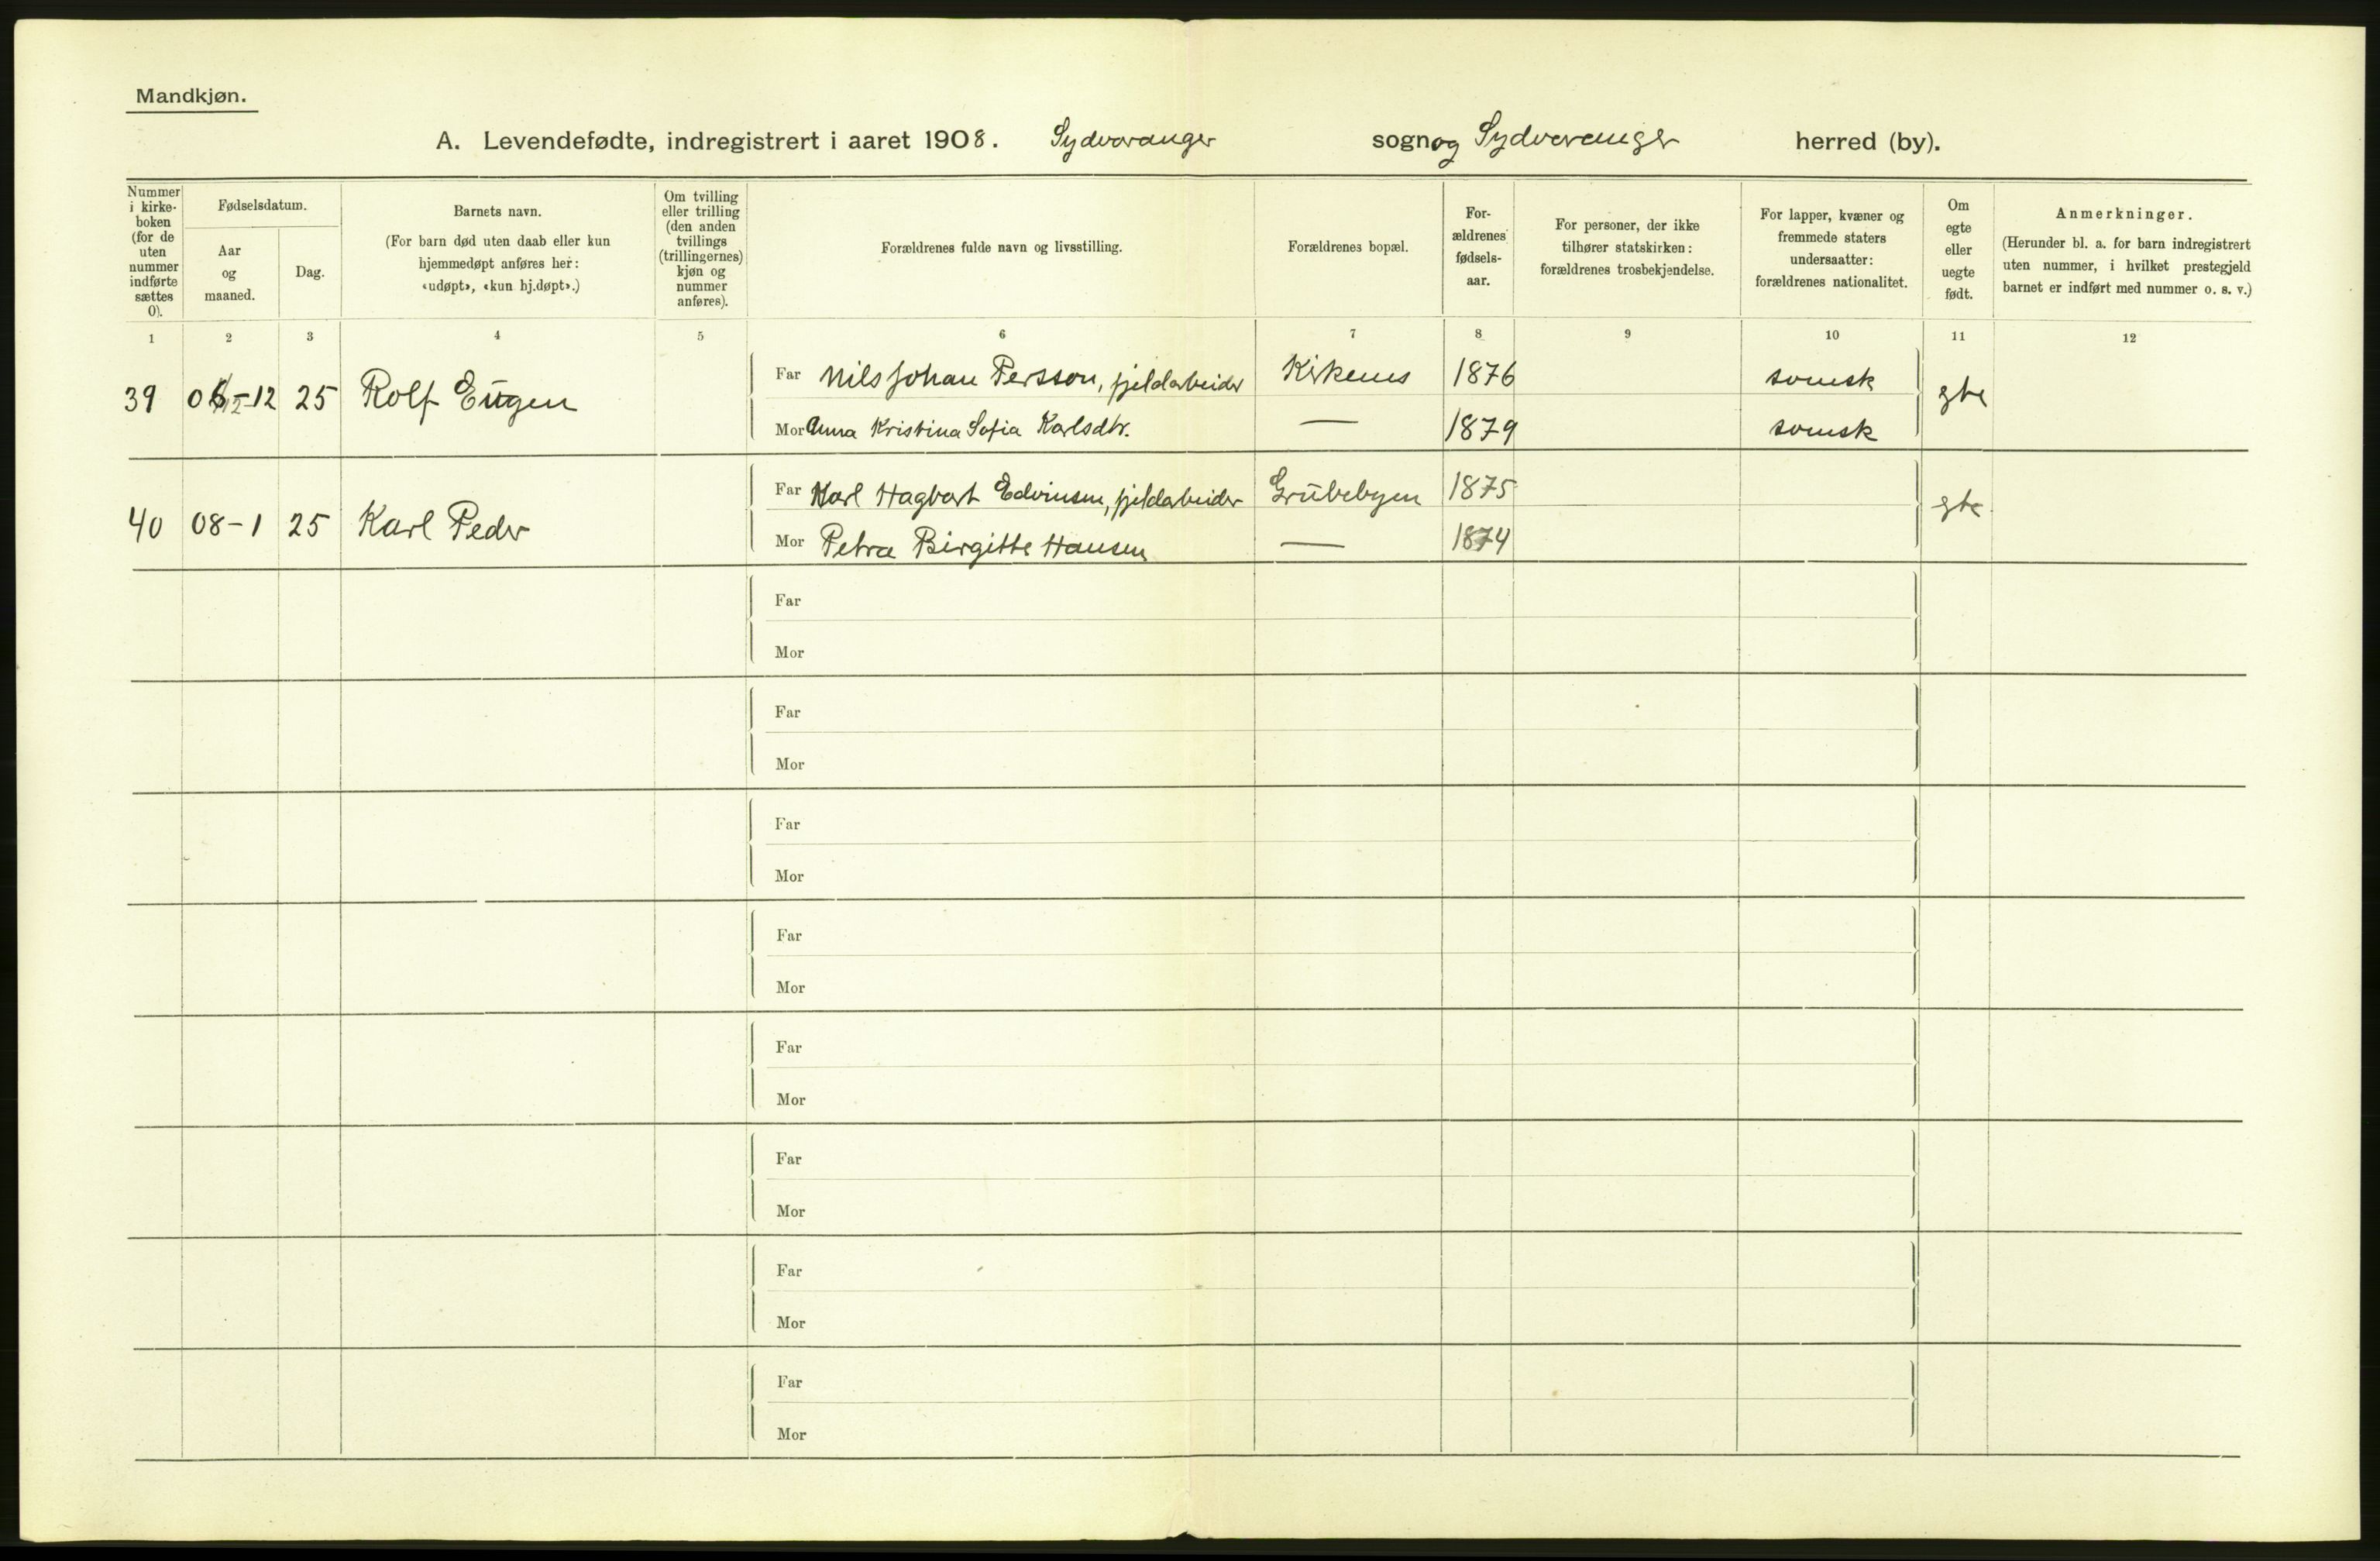 Mandkjøn.
A. Levendefødte, indregistrert i aaret 1908. Sydvaranger sogn og Sydvaranger herred (by).
Nummer i kirkeboken (for de uten nummer indførte sættes 0).
Fødselsdatum.
Aar og maaned.
Dag.
Barnets navn.
(For barn død uten daab eller kun hjemmedøpt anføres her: «udøpt», «kun hj.døpt».)
Om tvilling eller trilling (den anden tvillings (trillingernes) kjøn og nummer anføres).
Forældrenes fulde navn og livsstilling.
Forældrenes bopæl.
Forældrenes fødselsaar.
For personer, der ikke tilhører statskirken: forældrenes trosbekjendelse.
For lapper, kvæner og fremmede staters undersaatter: forældrenes nationalitet.
Om egte eller uegte født.
Anmerkninger.
(Herunder bl. a. for barn indregistrert uten nummer, i hvilket prestegjeld barnet er indført med nummer o. s. v.)
1 2 3 4 5 6 7 8 9 10 11 12
Far Nils Johan Persson, fjeldarbeider Kirkenes 1876 svensk
39 -12 25 Rolf Eugen egte
Mor Anna Kristina Sofia Karlsdtr. — 1879 svensk
Far Karl Hagbart Edvinsen, fjeldarbeider Grubebyen 1875
40 08-1 25 Karl Peder egte
Mor Petra Birgitte Hansen — 1874
Far
Mor
Far
Mor
Far
Mor
Far
Mor
Far
Mor
Far
Mor
Far
Mor
Far
Mor